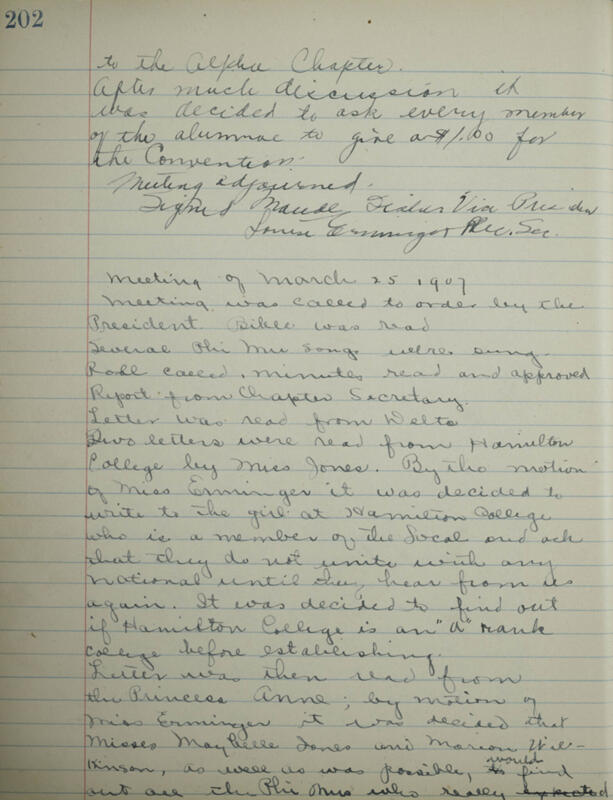 202
to the Alpha Chapter.
After much discussion it
was decided to ask every member
of the alumnae to give a $1.00 for
the Convention.
Meeting adjourned.
Signed Maude Vice President
Louise Erminger Rec. Sec.
Meeting of March 25 1907
Meeting was called to order by the
President. Bible was read
Several Phi Mu songs were sung.
Roll called, minutes read and approved
Report from Chapter Secretary.
Letter was read from Delta
Two letters were read from Hamilton
College by Miss Jones. By the motion
of Miss Erminger it was decided to
write to the girl at Hamilton College
who is a member of the local and ask
that they do not unite with any
national until they hear from us
again. It was decided to find out
if Hamilton College is an "A" rank
college before establishing.
Letter was then read from
the Princess Anne; by motion of
Miss Erminger it was decided that
Misses Maybelle Jones and Marion Wil-
kinson, as well as was possible, would find
out all the Phi Mus who really